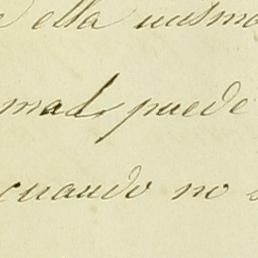 ella misma
mal puede
cuando no